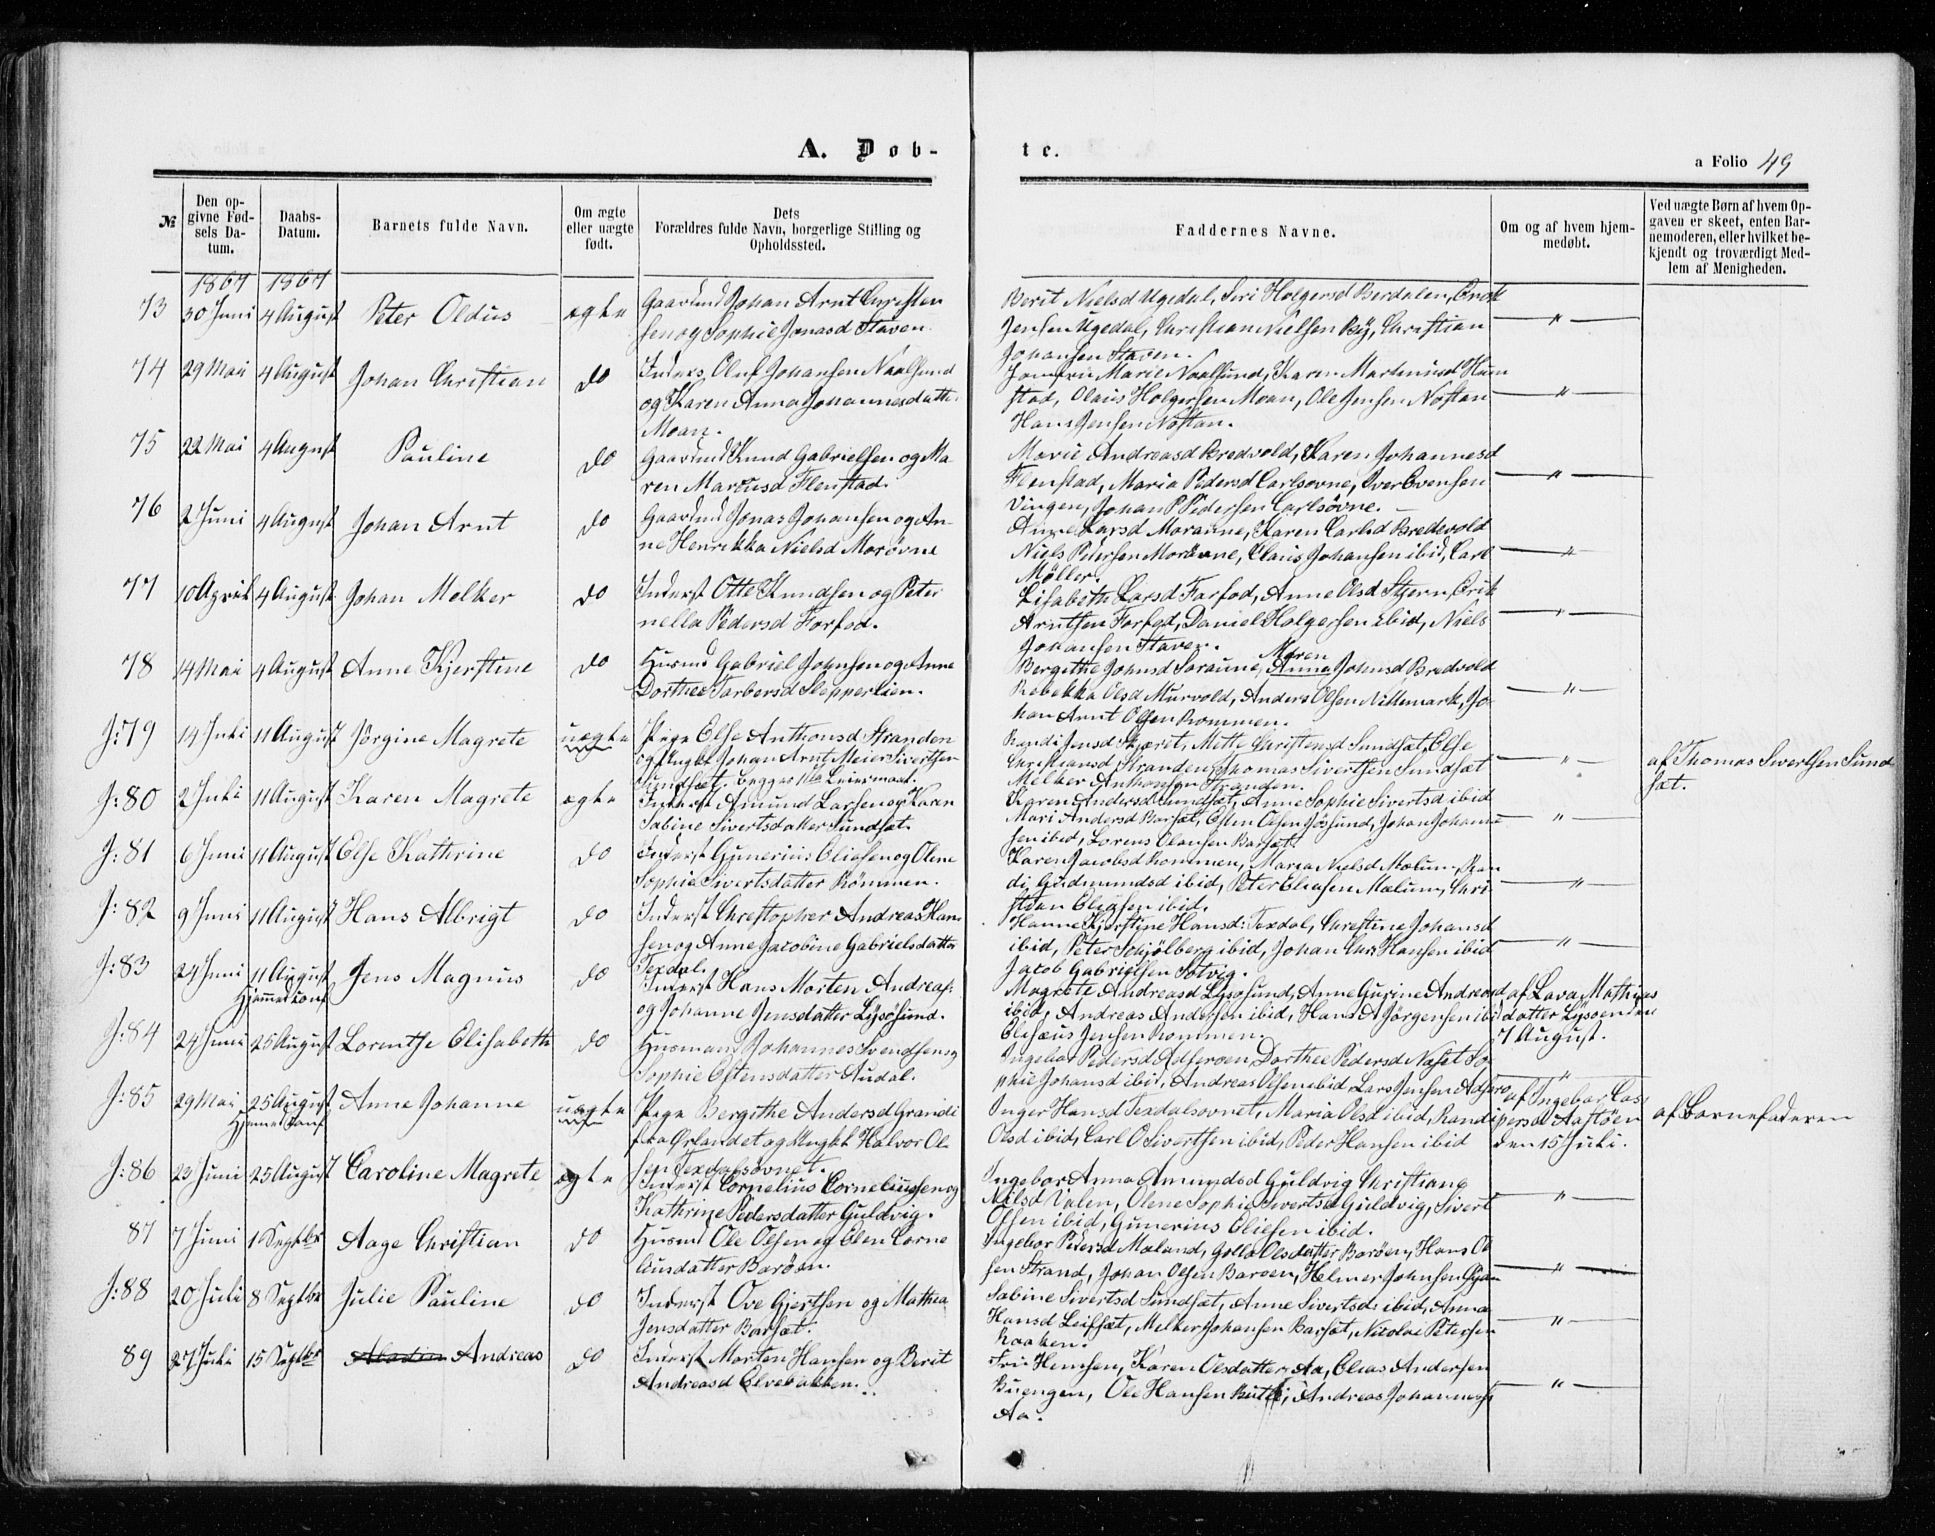 A. Døb-
te.
a Folio 49
№
Den op-
givne Fød-
sels Da-
tum.
Daabs-
Datum.
Barnets fulde Navn.
Om ægte
eller uægte
født.
Dets
Forældres fulde Navn, borgerlige Stilling og
Opholdssted.
Faddernes Navne.
Om og af hvem hjem-
medøbt.
Ved uægte Børn af hvem Op-
gaven er skeet, enten Bar-
nemoderen, eller hvilket be-
kjendt og troværdigt Med-
lem af Menigheden.
1867 1867
73 30 Juni 4 August Peter Oldus ægte Gaardmd Johan Arnt Christen
sen og Sophie Jonasd Staven.
Berit Nielsd Ugedal, Siri Holgersd Berdalen,
Jensen Ugedal, Christian Nielsen Bÿ, Christian
Johansen Staven.
74 29 Mai 4 August Johan Christian do Inders. Oluf Johansen Naalsund
og Karen Anna Johannesdatte.
Moan.
Jomfru Marie Naalsund, Karen Martinusd Ham
stad, Olaus Holgersen Moan, Ole Jensen Nøstan
Hans Jensen Nøstan.
75 22 Mai 4 August Pauline do Gaardmd Knud Gabrielsen og Ma
ren Marcusd Flenstad.
Marie Andreasd Bredvold, Karen Johannesd
Flenstad, Maria Pedersd Carlsøvne, Iver Evensen
Vingen, Johan P Pedersen Carlsøvne.
76 2 Juni 4 August Johan Arnt do Gaardmd Jonas Johansen og An-
ne Henrikka Nielsd Morøvne
Anne Larsd Moraune, Karen Carlsd Bredevold
Niels Petersen Moraune, Claus Johansen ibid, Carl
Møller.
77 10 April 4 August Johan Melker do Inderst Otte Knudsen og Peter
nella Pedersd Forfod.
Lisabeth Larsd Forfod, Anne Olsd Stjern, Erik
Arntsen Forfod, Daniel Holgersen ibid, Niels
Johansen Staven.
78 14 Mai 4 August Anne Kjerstine do Husmd Gabriel Johnsen og Anne
Dorthea Torbersd Slepperlien.
Maren
Bergithe Johnsd Soraune, Anna Johnsd Bredvold
Rebekka Olsd Murvold, Anders Olsen Nittemark, Jo-
han Arnt Olsen Rømmen.
J: 79 14 Juli 11 August Jörgine Magrete uægte Pige Else Anthonsd Stranden
og Ungkl Johan Arnt Meier Sivertsen
Sundsæt. begges 1ste Leiermaal.
Randi Jensd Skjæret, Mette Christensd Sundsæt, Else
Christiansd Stranden, Thomas Sivertsen Sundsæt
Melker Anthonsen Stranden.
af Thomas Sivertsen Sund
sæt.
J: 80 2 Juli 11 August Karen Magrete ægte Inderst Amund Larsen og Karen
Sabine Sivertsdatter Sundsæt.
Karen Andersd Sundsæt, Anne Sophie Sivertsd ibid
Mari Andersd Barsæt, Esten Olsen Jøssund, Johan Johann
sen ibid, Lorens Olausen Barsæt.
J: 81 6 Juni 11 August Else Kathrine do Inderst Gunerius Eliesen og Olene
Sophie Sivertsdatter Römmen.
Karen Jacobsd Rommen, Maria Nielsd Mælum, Ran
di Gudmundsd ibid, Peter Eliasen Mælum, Chri-
stian Eliasen ibid.
J: 82 9 Juni 11 August Hans Albrigt do Inderst Christopher Andreas Han
sen og Anne Jacobine Gabrielsdatter
Texdal.
Hanne Kjerstine Hansd: Texdal, Christine Johansd
ibid, Peter Schjølberg ibid, Johan Chr. Hansen ibid
Jacob Gabrielsen Sætvig.
J: 83 24 Juni 11 August Jens Magnus do Inderst Hans Morten Andreas:
Hjemmed Conf
og Johanne Jensdatter Lysøsund.
Magrete Andreasd Lysøsund, Anne Gurine Andreasd
ibid, Andreas Andersen ibid, Hans A Jørgensen ibid
Elisæus Jensen Rommen.
af Lava Mathias
datter Lysøen den
7 August.
J: 84 24 Juni 25 August Lorentse Elisabeth do Husmand Johannes Svendsen og
Sophie Estensdatter Audal.
Ingebor Pedersd Adseroen, Dorthee Pedersd Nesset So-
phie Johansd ibid, Andreas Olsen ibid, Lars Jensen Adsero
J: 85 29 Mai 25 August Anne Johanne uægte Pige Bergithe Andersd Grandi
Hjemmed Conf
fra Ørlandet og Ungkl Halvor Ol-
sen Texdalsøvnet.
Inger Hansd Texdalsovnet, Maria Olsd ibid, Randi
Olsd ibid, Carl O Sivertsen ibid, Peder Hansen ibid
af Ingebor Cas-
persd Aastøen
den 15 Juli.
af Barnefaderen
J: 86 23 Juni 25 August Caroline Magrete ægte Inderst Cornelius Corneliussen og
Kathrine Pedersdatter Guldvig.
Ingebor Anna Amundsd Guldvig Christiane
Nilsd Valen, Olene Sophie Sivertsd Guldvig, Sivert
Olsen ibid, Gunerius Eliesen ibid.
87 7 Juni 1 Septbr Aage Christian do Husmd Ole Olsen og Elen Corne
liusdatter Barøen.
Ingebor Pedersd Mæland, Golla Olsdatter Barøen, Hans Ol
sen Strand, Johan Olsen Barøen, Helmer Johnsen
J: 88 20 Juli 8 Septbr Julie Pauline do Inderst Ove Gjertsen og Mathea
Jensdatter Barsæt.
Sabine Sivertsd Sundsæt, Anne Sivertsd ibid, Anna
Hansd Leifsæt, Melker Johansen Barsæt, Nicolai Petersen
Kaaken.
89 27 Juli 15 Septbr Andreas do Inderst Morten Hansen og Berit
Andreasd Elvebakken.
Fru Hemsen, Karen Olsdatter Aa, Elias Andersen
Buengen, Ole Hansen Butli, Andreas Johannessen
Aa.